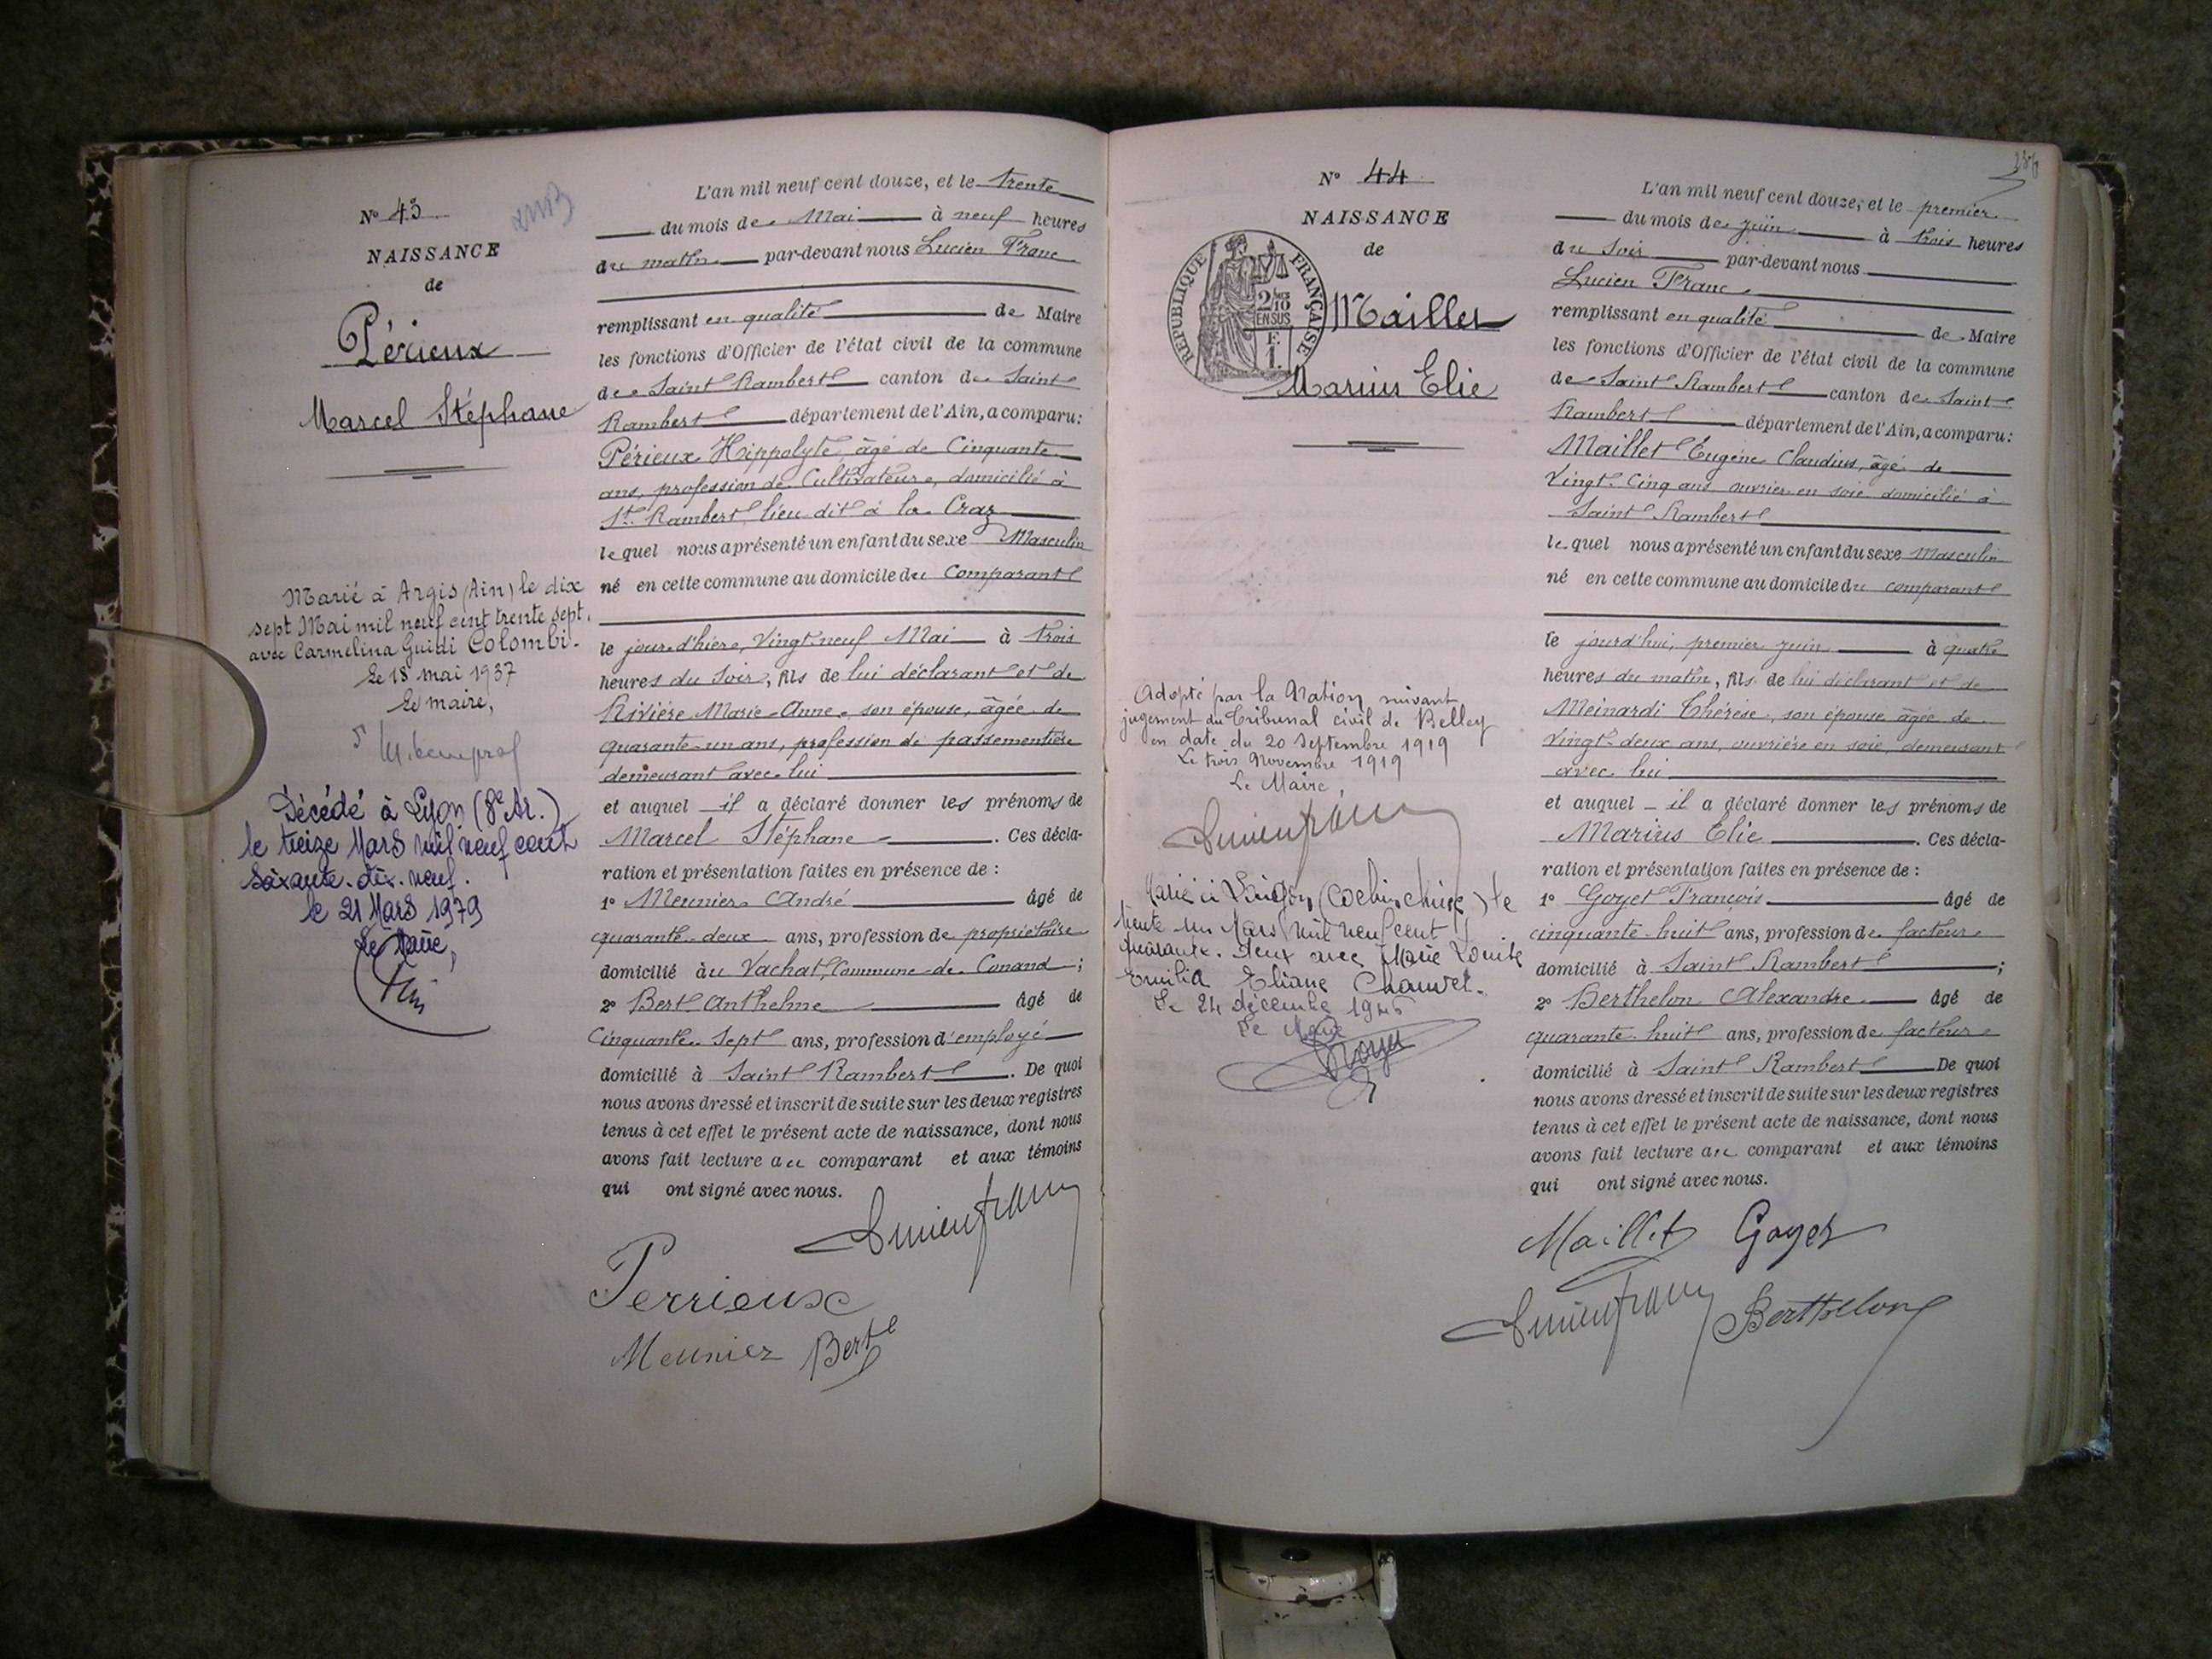 N° 43
NAISSANCE
de
Périeux
Marcel Stéphane
Marié à Argis (Ain) le dix
sept Mai mil neuf cent trente sept,
avec Carmelina Guidi Colombi.
Le 18 mai 1937
Le maire,
Décédé à Lyon (8e Ar.)
le treize Mars mil neuf cent
soixante-dix-neuf.
le 21 Mars 1979
Le Maire,
L'an mil neuf cent douze, et le trente
du mois de Mai à neuf heures
du matin par-devant nous Lucien Franc
remplissant en qualité de Maire
les fonctions d'Officier de l'état civil de la commune
de Saint Rambert canton de Saint
Rambert département de l'Ain, a comparu:
Périeux Hippolyte, âgé de Cinquante
ans, profession de Cultivateur, domicilié à
St. Rambert lieu dit à la Craz
lequel nous a présenté un enfant du sexe Masculin
né en cette commune au domicile du Comparant
le jour d'hier, Vingt-neuf Mai à trois
heures du soir, fils de lui déclarant et de
Rivière Marie-Anne, son épouse, âgée de
quarante-un ans, profession de passementière
demeurant avec lui
et auquel il a déclaré donner les prénoms de
Marcel Stéphane. Ces décla-
ration et présentation faites en présence de :
1° Meunier André âgé de
quarante-deux ans, profession de propriétaire
domicilié au Vachat, Commune de Conand ;
2° Bert Anthelme âgé de
Cinquante-Sept ans, profession d'employé
domicilié à Saint Rambert. De quoi
nous avons dressé et inscrit de suite sur les deux registres
tenus à cet effet le présent acte de naissance, dont nous
avons fait lecture au comparant et aux témoins
qui ont signé avec nous.
Lucien Franc
Perrieux
Meunier Bert
N° 44
NAISSANCE
de
RÉPUBLIQUE FRANÇAISE
2/10
EN SUS
F.
1.
Maillet
Marius Elie
Adopté par la Nation suivant
jugement du Tribunal civil de Belley
en date du 20 Septembre 1919
Le trois Novembre 1919
Le Maire,
Lucien Franc
Marié à Saïgon (Cochinchine) le
trente un Mars mil neuf cent
quarante-deux avec Marie Louise
Emilia Eliane Chauvet.
Le 24 décembre 1946
Le Maire
L'an mil neuf cent douze, et le premier
du mois de juin à trois heures
du soir par-devant nous
Lucien Franc
remplissant en qualité de Maire
les fonctions d'Officier de l'état civil de la commune
de Saint Rambert canton de Saint
Rambert département de l'Ain, a comparu:
Maillet Eugène Claudius, âgé de
Vingt-Cinq ans, ouvrier en soie domicilié à
Saint Rambert
lequel nous a présenté un enfant du sexe Masculin
né en cette commune au domicile du comparant
le jourd'hui, premier juin à quatre
heures du matin, fils de lui déclarant et de
Meinardi Thérèse, son épouse âgée de
Vingt-deux ans, ouvrière en soie, demeurant
avec lui
et auquel il a déclaré donner les prénoms de
Marius Elie. Ces décla-
ration et présentation faites en présence de :
1° Goyet François âgé de
cinquante-huit ans, profession de facteur
domicilié à Saint Rambert ;
2° Berthelon Alexandre âgé de
quarante-huit ans, profession de facteur
domicilié à Saint Rambert De quoi
nous avons dressé et inscrit de suite sur les deux registres
tenus à cet effet le présent acte de naissance, dont nous
avons fait lecture au comparant et aux témoins
qui ont signé avec nous.
Maillet Goyet
Lucien Franc Berthelon